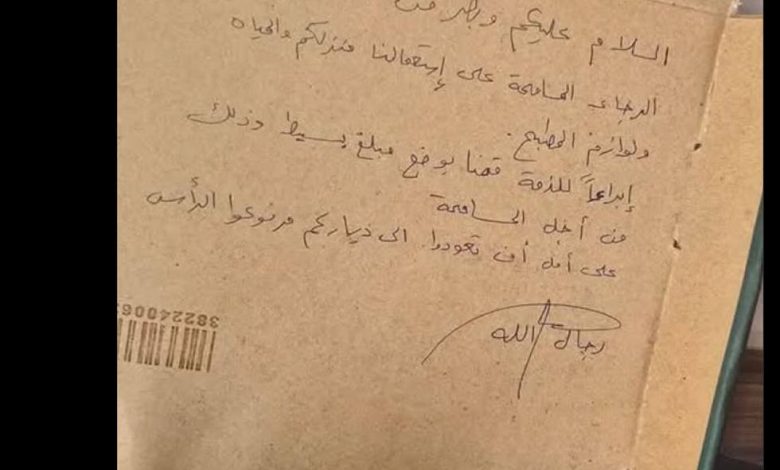 السلام عليكم وبعد
الرجاء المسامحة على إستعمالنا منزلكم والمياه
ولوازم المطبخ.
إبراءاً للذمة قمنا بوضع مبلغ بسيط وذلك
من أجل المسامحة
على أمل أن تعودوا الى دياركم مرفوعوا الرأس
رجال الله